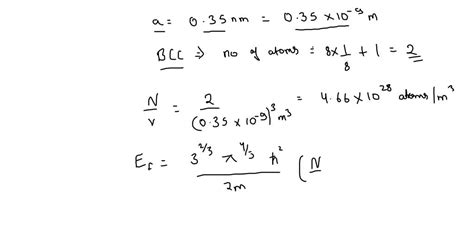 a = 0.35 nm = 0.35 x 10⁻⁹ m
BCC ⇒ no of atoms = 8x 1/8 + 1 = 2
N/v = 2/(0.35 x 10⁻⁹)³ m³ = 4.66 x 10²⁸ atoms/m³
E_f = 3^(2/3) π^(4/3) ħ²/2m (N